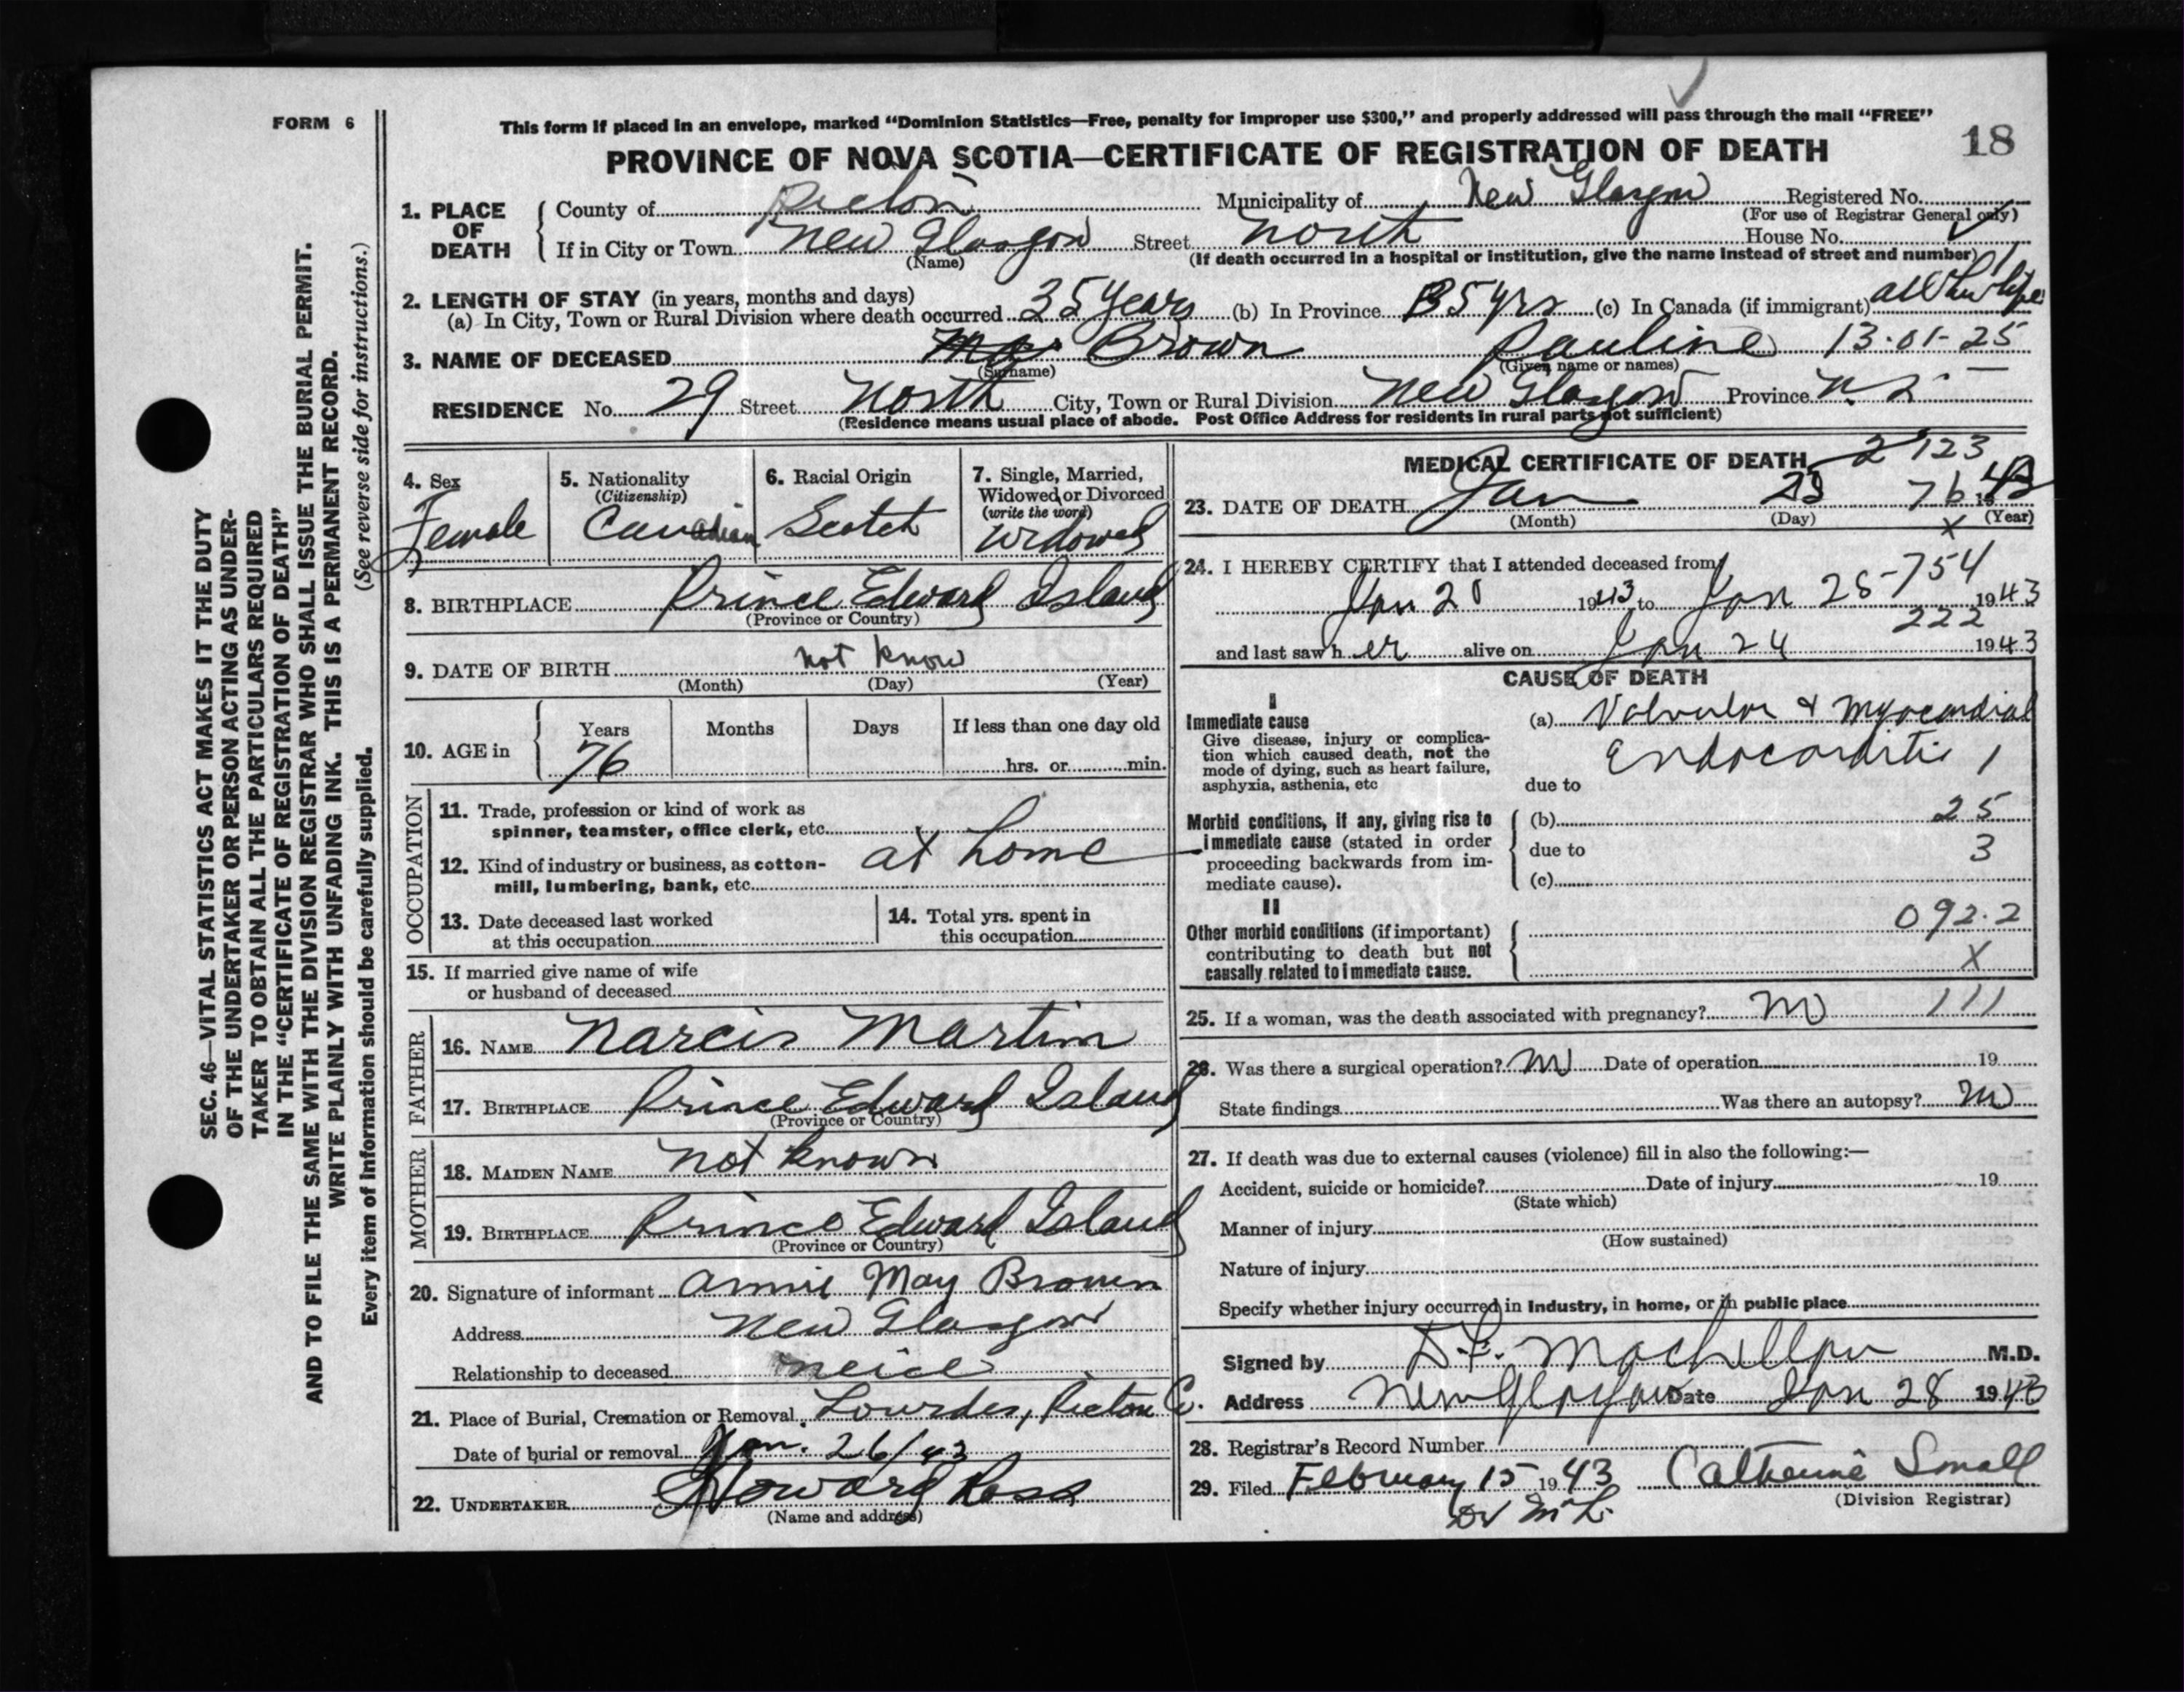 FORM 6
This form if placed in an envelope, marked "Dominion Statistics—Free, penalty for improper use $300," and properly addressed will pass through the mail "FREE"
PROVINCE OF NOVA SCOTIA—CERTIFICATE OF REGISTRATION OF DEATH
18
1. PLACE OF DEATH
County of Pictou Municipality of New Glasgow Registered No.
(For use of Registrar General only)
If in City or Town New Glasgow Street North House No.
(Name) (If death occurred in a hospital or institution, give the name instead of street and number)
2. LENGTH OF STAY (in years, months and days)
(a) In City, Town or Rural Division where death occurred 35 years (b) In Province 35 yrs (c) In Canada (if immigrant) all her life
3. NAME OF DECEASED Mrs Brown Pauline 13-01-25
(Surname) (Given name or names)
RESIDENCE No. 29 Street North City, Town or Rural Division New Glasgow Province N.S
(Residence means usual place of abode. Post Office Address for residents in rural parts not sufficient)
4. Sex
Female
5. Nationality
(Citizenship)
Canadian
6. Racial Origin
Scotch
7. Single, Married, Widowed or Divorced
(write the word)
Widowed
8. BIRTHPLACE Prince Edward Island
(Province or Country)
9. DATE OF BIRTH not know
(Month) (Day) (Year)
10. AGE in
Years Months Days If less than one day old
76 hrs. or min.
OCCUPATION
11. Trade, profession or kind of work as
spinner, teamster, office clerk, etc.
at home
12. Kind of industry or business, as cotton-
mill, lumbering, bank, etc.
13. Date deceased last worked
at this occupation
14. Total yrs. spent in
this occupation
15. If married give name of wife
or husband of deceased
FATHER
16. NAME Narcis Martin
17. BIRTHPLACE Prince Edward Island
(Province or Country)
MOTHER
18. MAIDEN NAME not known
19. BIRTHPLACE Prince Edward Island
(Province or Country)
20. Signature of informant Annie May Brown
Address New Glasgow
Relationship to deceased neice
21. Place of Burial, Cremation or Removal Lourdes, Pictou Co.
Date of burial or removal Jan. 26/43
22. UNDERTAKER Howard Ross
(Name and address)
MEDICAL CERTIFICATE OF DEATH
2 123
23. DATE OF DEATH Jan 76 1943
(Month) (Day) (Year)
x
24. I HEREBY CERTIFY that I attended deceased from
Jan 20 1943 to Jan 25 1943
754
222
and last saw h er alive on Jan 24 1943
CAUSE OF DEATH
I
Immediate cause
Give disease, injury or complica-
tion which caused death, not the
mode of dying, such as heart failure,
asphyxia, asthenia, etc
(a) Valvular & Myocardial
Endocarditis 1
due to
Morbid conditions, if any, giving rise to
immediate cause (stated in order
proceeding backwards from im-
mediate cause).
(b) 25
due to 3
(c)
II
Other morbid conditions (if important)
contributing to death but not
causally related to immediate cause.
092.2
X
25. If a woman, was the death associated with pregnancy? no 111
26. Was there a surgical operation? no Date of operation 19
State findings Was there an autopsy? no
27. If death was due to external causes (violence) fill in also the following:—
Accident, suicide or homicide? Date of injury 19
(State which)
Manner of injury
(How sustained)
Nature of injury
Specify whether injury occurred in industry, in home, or in public place
Signed by M.D.
Address New Glasgow Date Jan 28 1943
28. Registrar's Record Number
29. Filed February 15 1943 Catherine Small
(Division Registrar)
SEC. 46—VITAL STATISTICS ACT MAKES IT THE DUTY
OF THE UNDERTAKER OR PERSON ACTING AS UNDER-
TAKER TO OBTAIN ALL THE PARTICULARS REQUIRED
IN THE "CERTIFICATE OF REGISTRATION OF DEATH"
AND TO FILE THE SAME WITH THE DIVISION REGISTRAR WHO SHALL ISSUE THE BURIAL PERMIT.
WRITE PLAINLY WITH UNFADING INK. THIS IS A PERMANENT RECORD.
Every item of information should be carefully supplied. (See reverse side for instructions.)